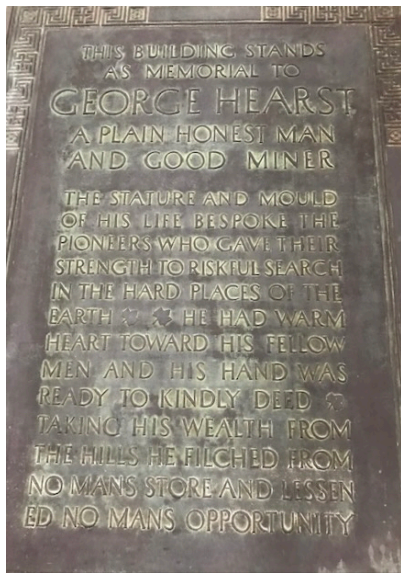 THIS BUILDING STANDS
AS MEMORIAL TO
GEORGE HEARST
A PLAIN HONEST MAN
AND GOOD MINER
THE STATURE AND MOULD
OF HIS LIFE BESPOKE THE
PIONEERS WHO GAVE THEIR
STRENGTH TO RISKFUL SEARCH
IN THE HARD PLACES OF THE
EARTH HE HAD WARM
HEART TOWARD HIS FELLOW
MEN AND HIS HAND WAS
READY TO KINDLY DEED
TAKING HIS WEALTH FROM
THE HILLS HE FILCHED FROM
NO MANS STORE AND LESSEN
ED NO MANS OPPORTUNITY